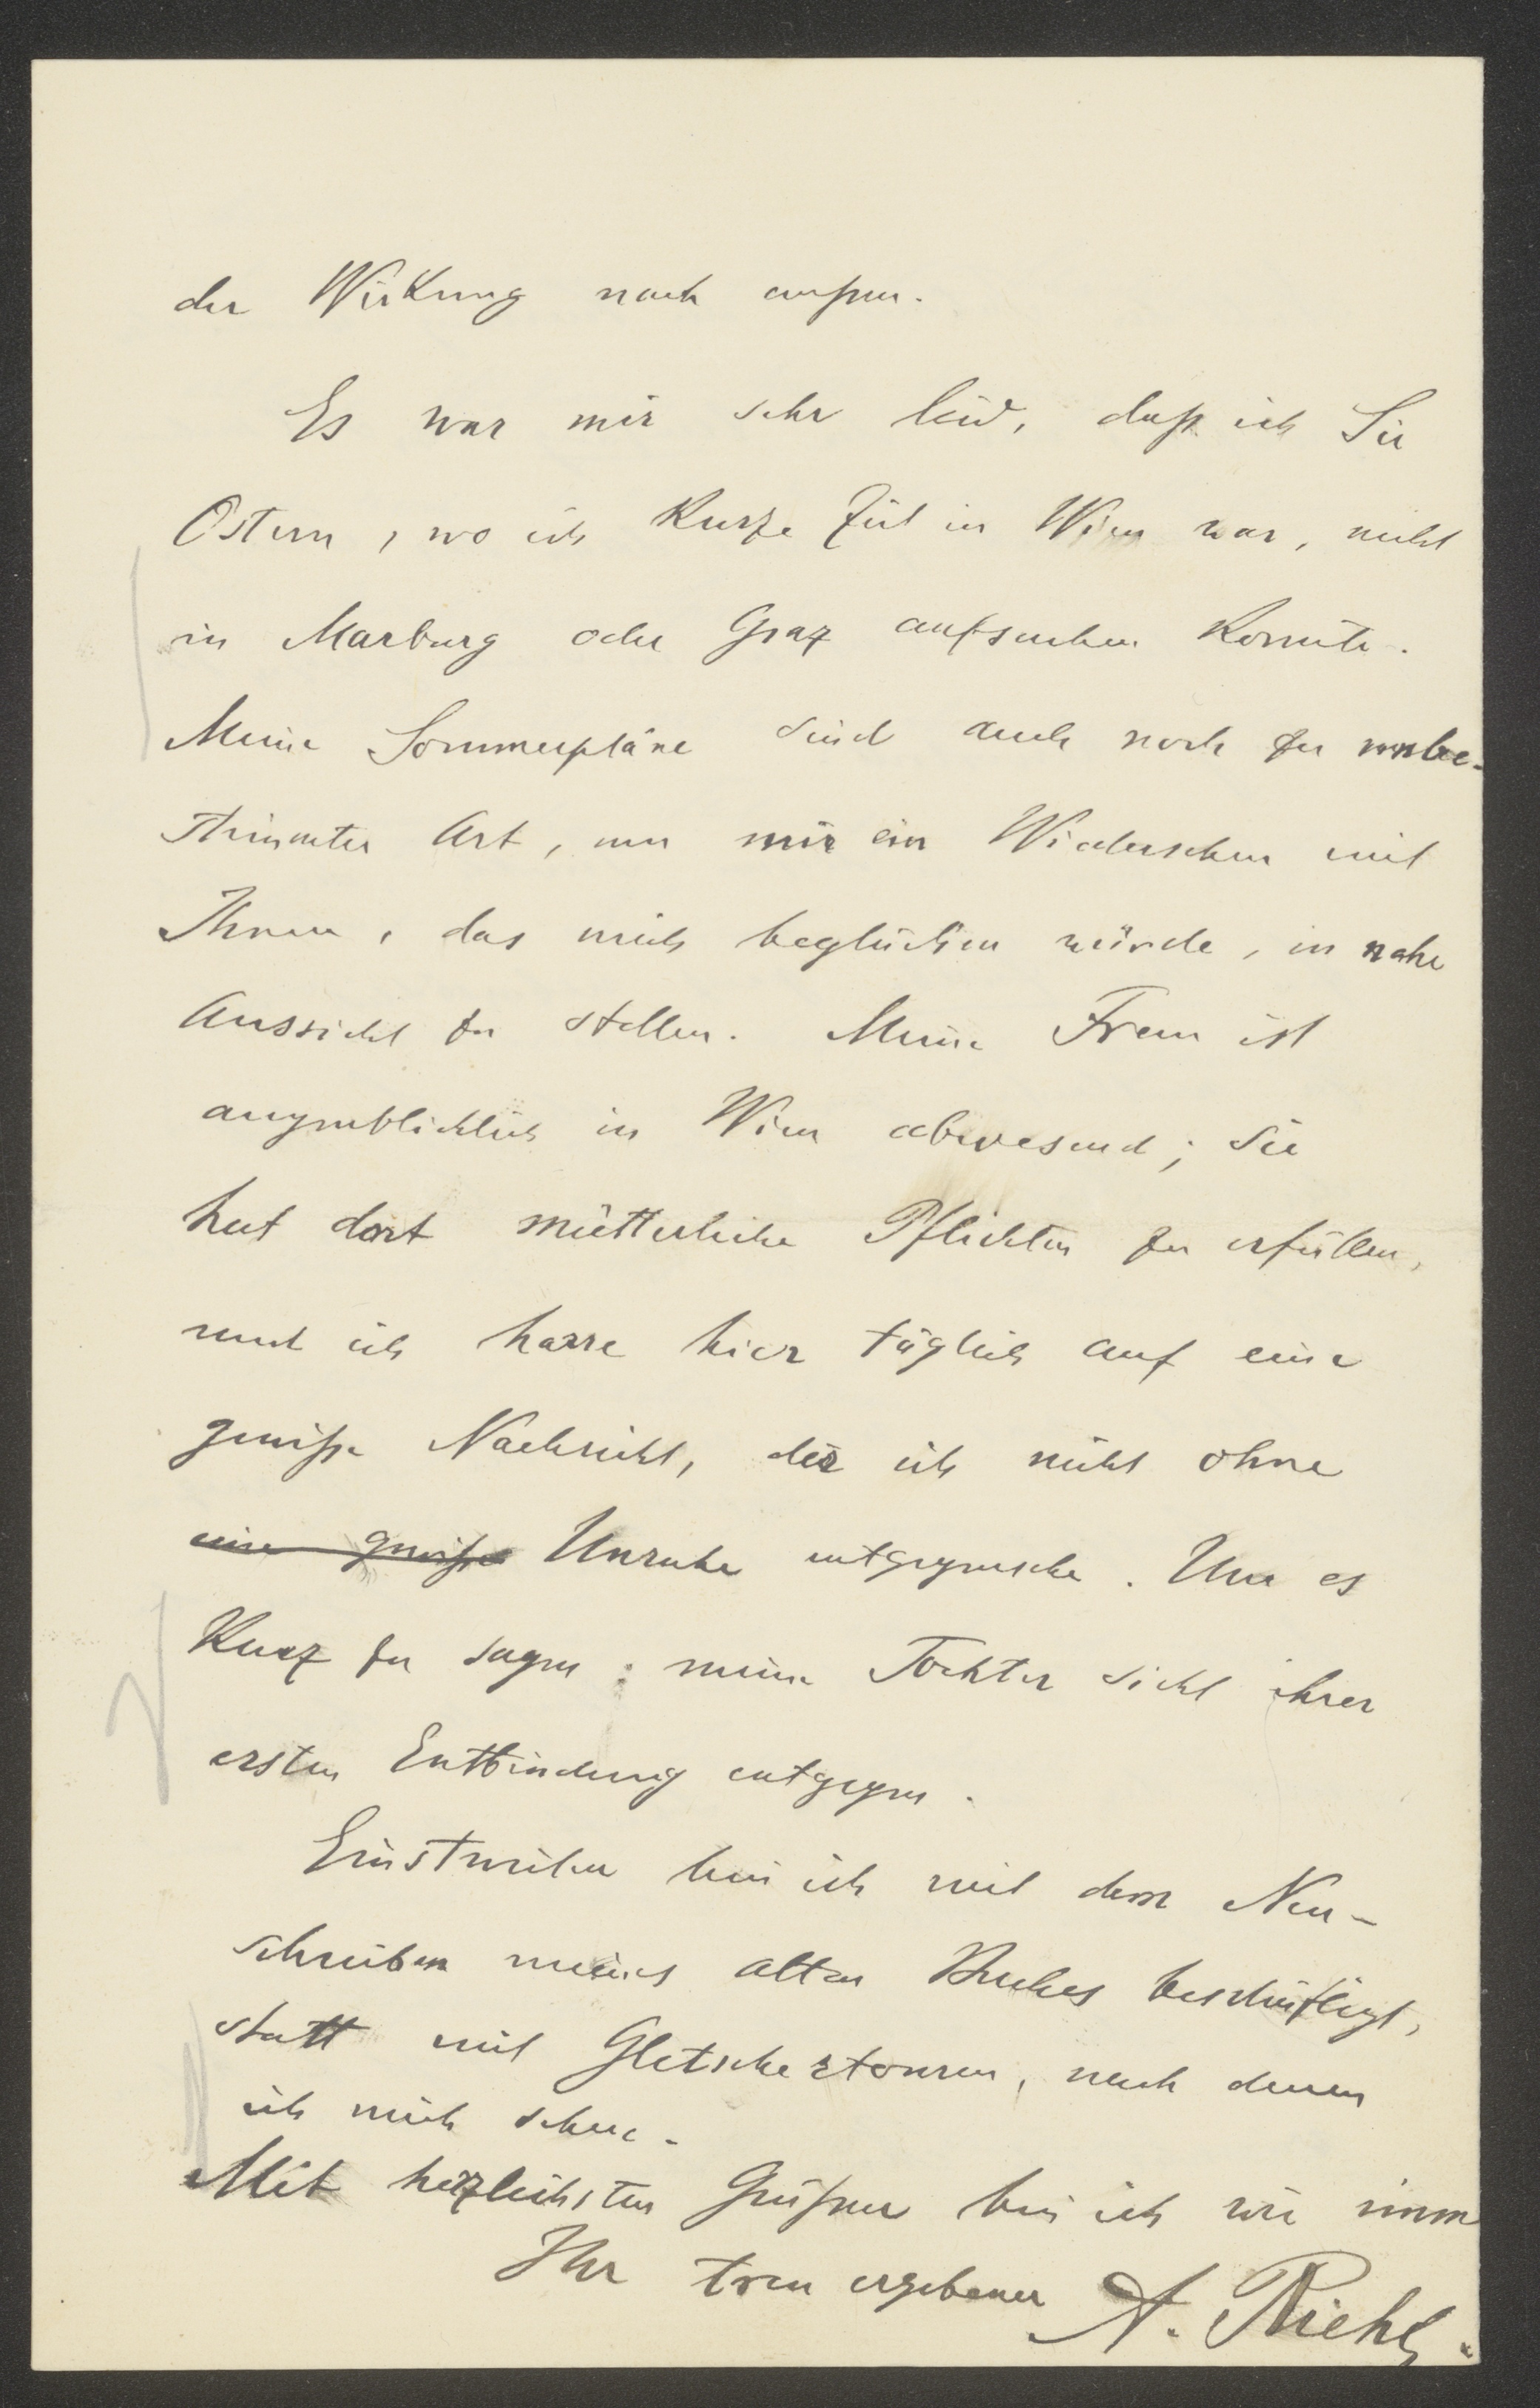 der Wirkung nach außen.
Es war mir sehr leid, daß ich Sie
Ostern, wo ich kurze Zeit in Wien war, nicht
in Marburg oder Graz aufsuchen konnte.
Meine Sommerpläne sind auch noch zu unbe-
stimmter Art, um mir ein Wiedersehen mit
Ihnen, das mich beglücken würde, in nahe
Aussicht zu stellen. Meine Frau ist
augenblicklich in Wien abwesend; sie
hat dort mütterliche Pflichten zu erfüllen,
und ich harre hier täglich auf eine
gewiße Nachricht, der ich nicht ohne
eine gewiße Unruhe entgegensehe. Um es
kurz zu sagen: meine Tochter sieht ihrer
ersten Entbindung entgegen.
Einstweilen bin ich mit dem Neu-
schreiben meines alten Buches beschäftigt,
statt mit Gletschertouren, nach denen
ich mich sehne.
Mit herzlichsten Grüßen bin ich wie imm
Ihr treu ergebener A. Riehl.